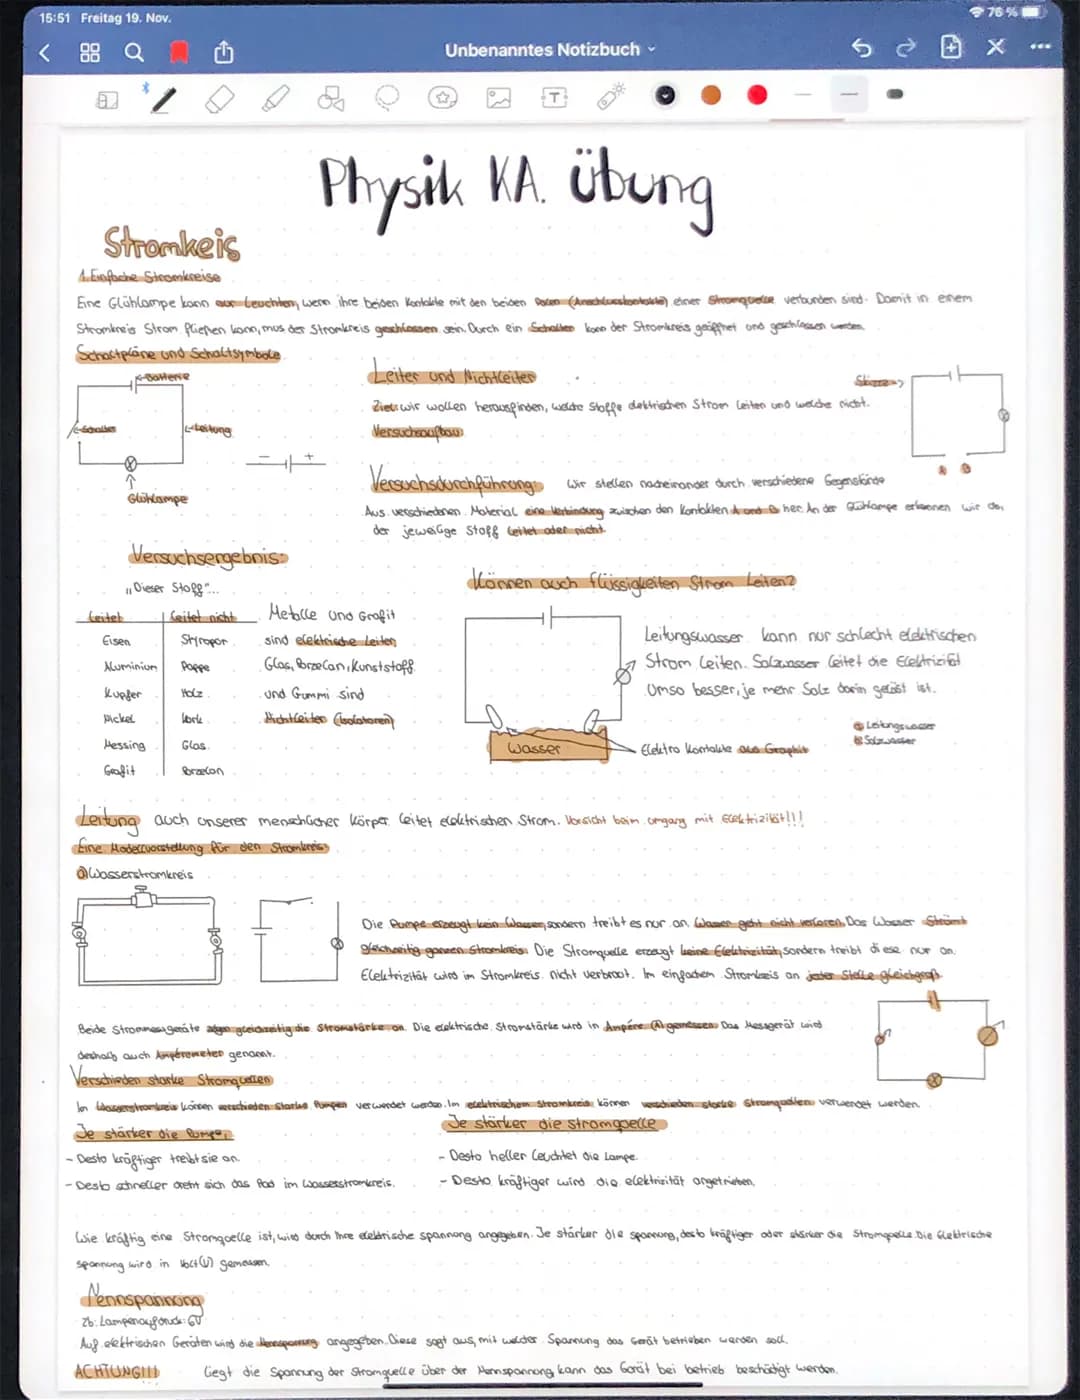 15:51 Freitag 19. Nov.
76 %
Unbenanntes Notizbuch
Physik KA. Übung
Stromkeis
1. Einfache Stromkreise
Eine Glühlampe kann nur Leuchten, wenn ihre beiden Kontakte mit den beiden Polen (Anschlusskontakte) einer Stromquelle verbunden sind. Damit in einem
Stromkreis Strom fließen kann, mus der Stromkreis geschlossen sein. Durch ein Schalter kann der Stromkreis geöffnet und geschlossen werden.
Schaltpläne und Schaltsymbole
Batterie
Schalter
Leitung
Glühlampe
- +
Leiter und Nichtleiter
Ziel: wir wollen herausfinden, welche Stoffe elektrischen Strom leiten und welche nicht.
Versuchsaufbau:
A B
Versuchsdurchführung: Wir stellen nacheinander durch verschiedene Gegenstände
Aus verschiedenen Material eine Verbindung zwischen den Kontakten A und B her. An der Glühlampe erkennen wir ob
der jeweilige Stoff leitet oder nicht.
Versuchsergebnis:
„Dieser Stoff"...
Leitet Leitet nicht
Eisen Styropor
Aluminium Pappe
Kupfer Holz
Nickel Kork
Messing Glas
Grafit Porzelan
Metalle und Grafit
sind elektrische Leiter,
Glas, Porzelan, Kunststoff
und Gummi sind
Nichtleiter (Isolatoren)
Können auch flüssigkeiten Strom Leiten?
Wasser
Leitungswasser kann nur schlecht elektrischen
Strom Leiten. Salzwasser leitet die Elektrizität
Umso besser, je mehr Salz darin gelöst ist.
Elektro Kontakte aus Graphit
Leitungswasser
Salzwasser
Leitung auch unserer menschlicher Körper leitet elektrischen Strom. Vorsicht beim umgang mit Elektrizität!!!
Eine Modellvorstellung für den Stromkreis
Wasserstromkreis
Die Pumpe erzeugt kein Wasser, sondern treibt es nur an. Wasser geht nicht verloren. Das Wasser Strömt
gleichzeitig ganzen Stromkreis. Die Stromquelle erzeugt keine Elektrizität, sondern treibt diese nur an.
Elektrizität wird im Stromkreis nicht verbraut. Im einfachem Stromkreis an jeder Stelle gleichgroß.
Beide Strommessgeräte zeigen gleichzeitig die Stromstärke an. Die elektrische Stromstärke wird in Ampére (A) gemessen. Das Messgerät wird
deshalb auch Ampéremeter genannt.
Verschieden starke Stromquellen
Im Wasserstromkreis können verschieden starke Pumpen verwendet werden. Im elektrischem Stromkreis können verschieden starke Stromquellen verwendet werden.
Je stärker die Pumpe,
- Desto kräftiger treibt sie an.
- Desto schneller dreht sich das Rad im Wasserstromkreis.
Je stärker die stromquelle
- Desto heller leuchtet die Lampe.
- Desto kräftiger wird die elektrizität angetrieben.
Wie kräftig eine Stromquelle ist, wird durch ihre elektrische spannung angegeben. Je stärker die spannung, desto kräftiger oder stärker die Stromquelle. Die Elektrische
spannung wird in Volt (V) gemessen.
Nennspannung
Zb: Lampenaufdruck: 6V
Auf elektrischen Geräten wird die Nennspannung angegeben. Diese sagt aus, mit welcher Spannung das Gerät betrieben werden soll.
ACHTUNG!!! Liegt die Spannung der Stromquelle über der Nennspannung, kann das Gerät bei betrieb beschädigt werden.